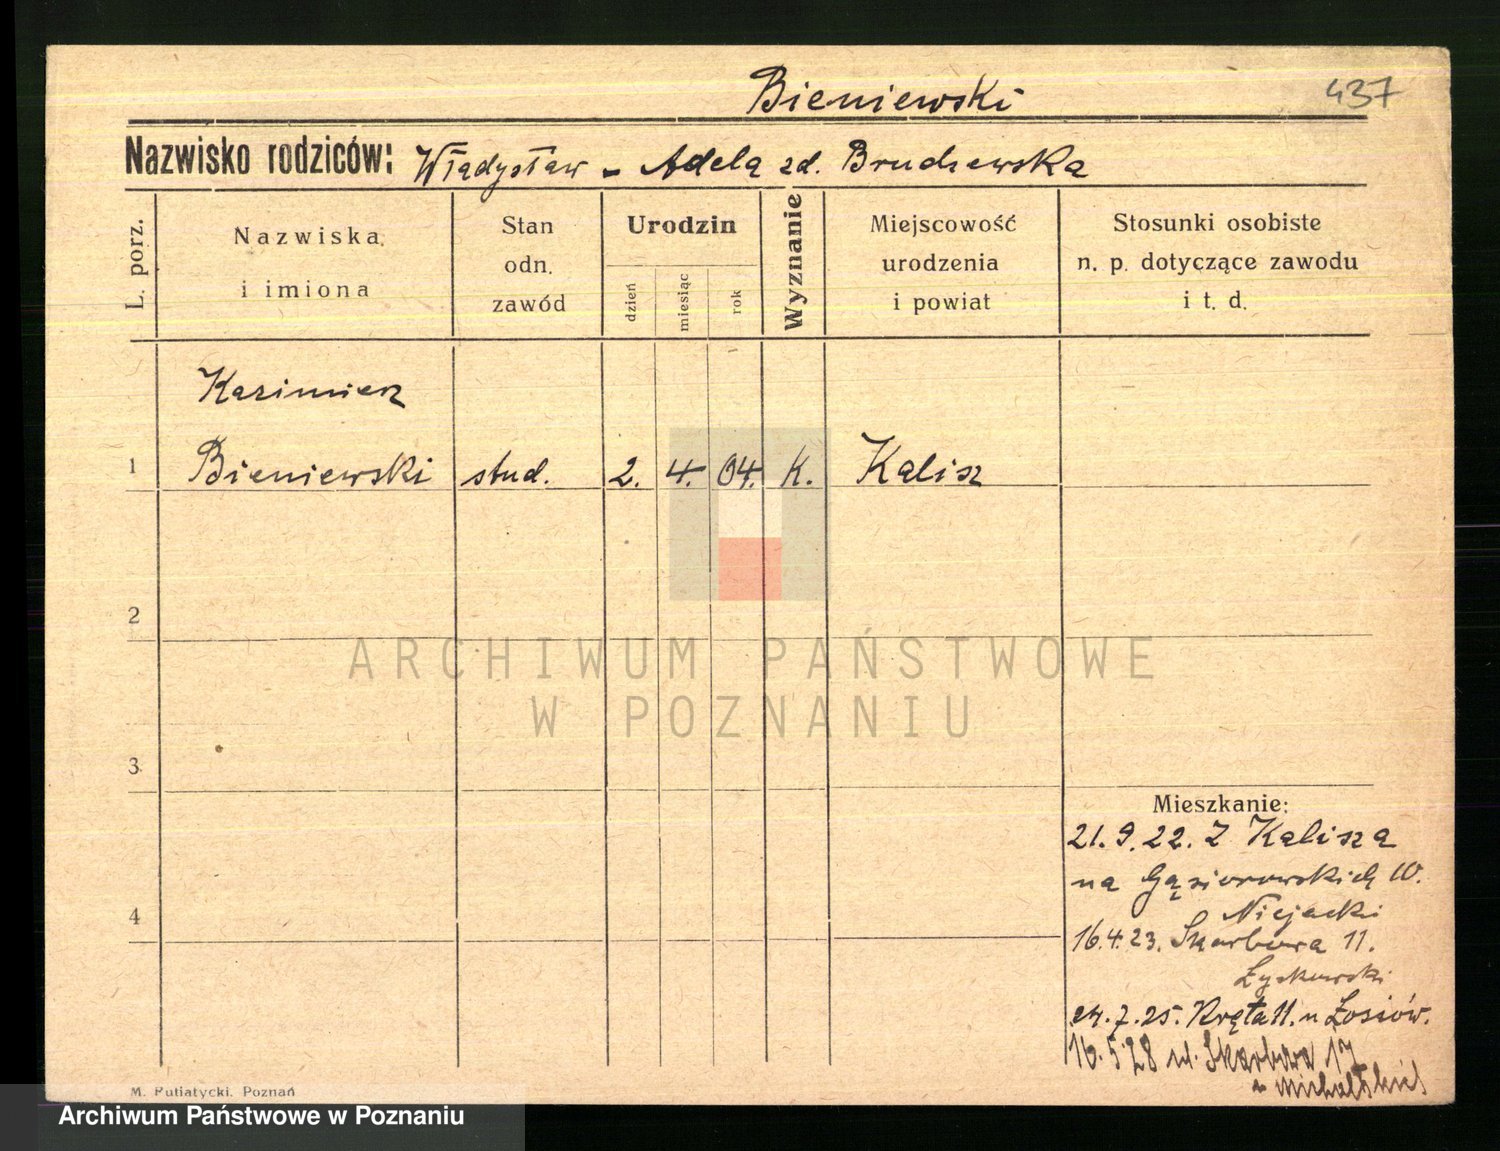 Bieniewski 437
Nazwisko rodziców: Władysław - Adela zd. Bruchewska
L. porz.
Nazwiska
i imiona
Stan
odn.
zawód
Urodzin
dzień
miesiąc
rok
Wyznanie
Miejscowość
urodzenia
i powiat
Stosunki osobiste
n. p. dotyczące zawodu
i t. d.
Kazimierz
1 Bieniewski stud. 2. 4. 04. K. Kalisz
2
ARCHIWUM PAŃSTWOWE
W POZNANIU
3
Mieszkanie:
21.9.22. Z Kalisza
na Gąsiorowskich 10.
Niejacki
4
16.4.23. Skarbowa 11.
Łyskowski
24.7.25. Kręta 11. u Łosiów.
16.5.28 ul. Skarbowa 17
u Michalskich
M. Putiatycki. Poznań
Archiwum Państwowe w Poznaniu